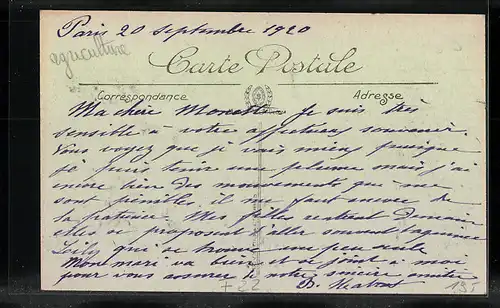 Paris 20 Septembre 1920
agriculture
Carte Postale
Correspondance
Adresse
Ma chère Je suis très
sensible à votre affectueux souvenir.
Vous voyez que je vais mieux puisque
je puis tenir une plume mais j'ai
encore bien des mouvements que me
sont pénibles il me faut encore de
la patience. Mes filles rentrent demain
elles se proposent d'aller souvent
qui se trouve une peu seule
Mon mari va bien et se joint à moi
pour vous assurer de notre sincère amitié
+22
135